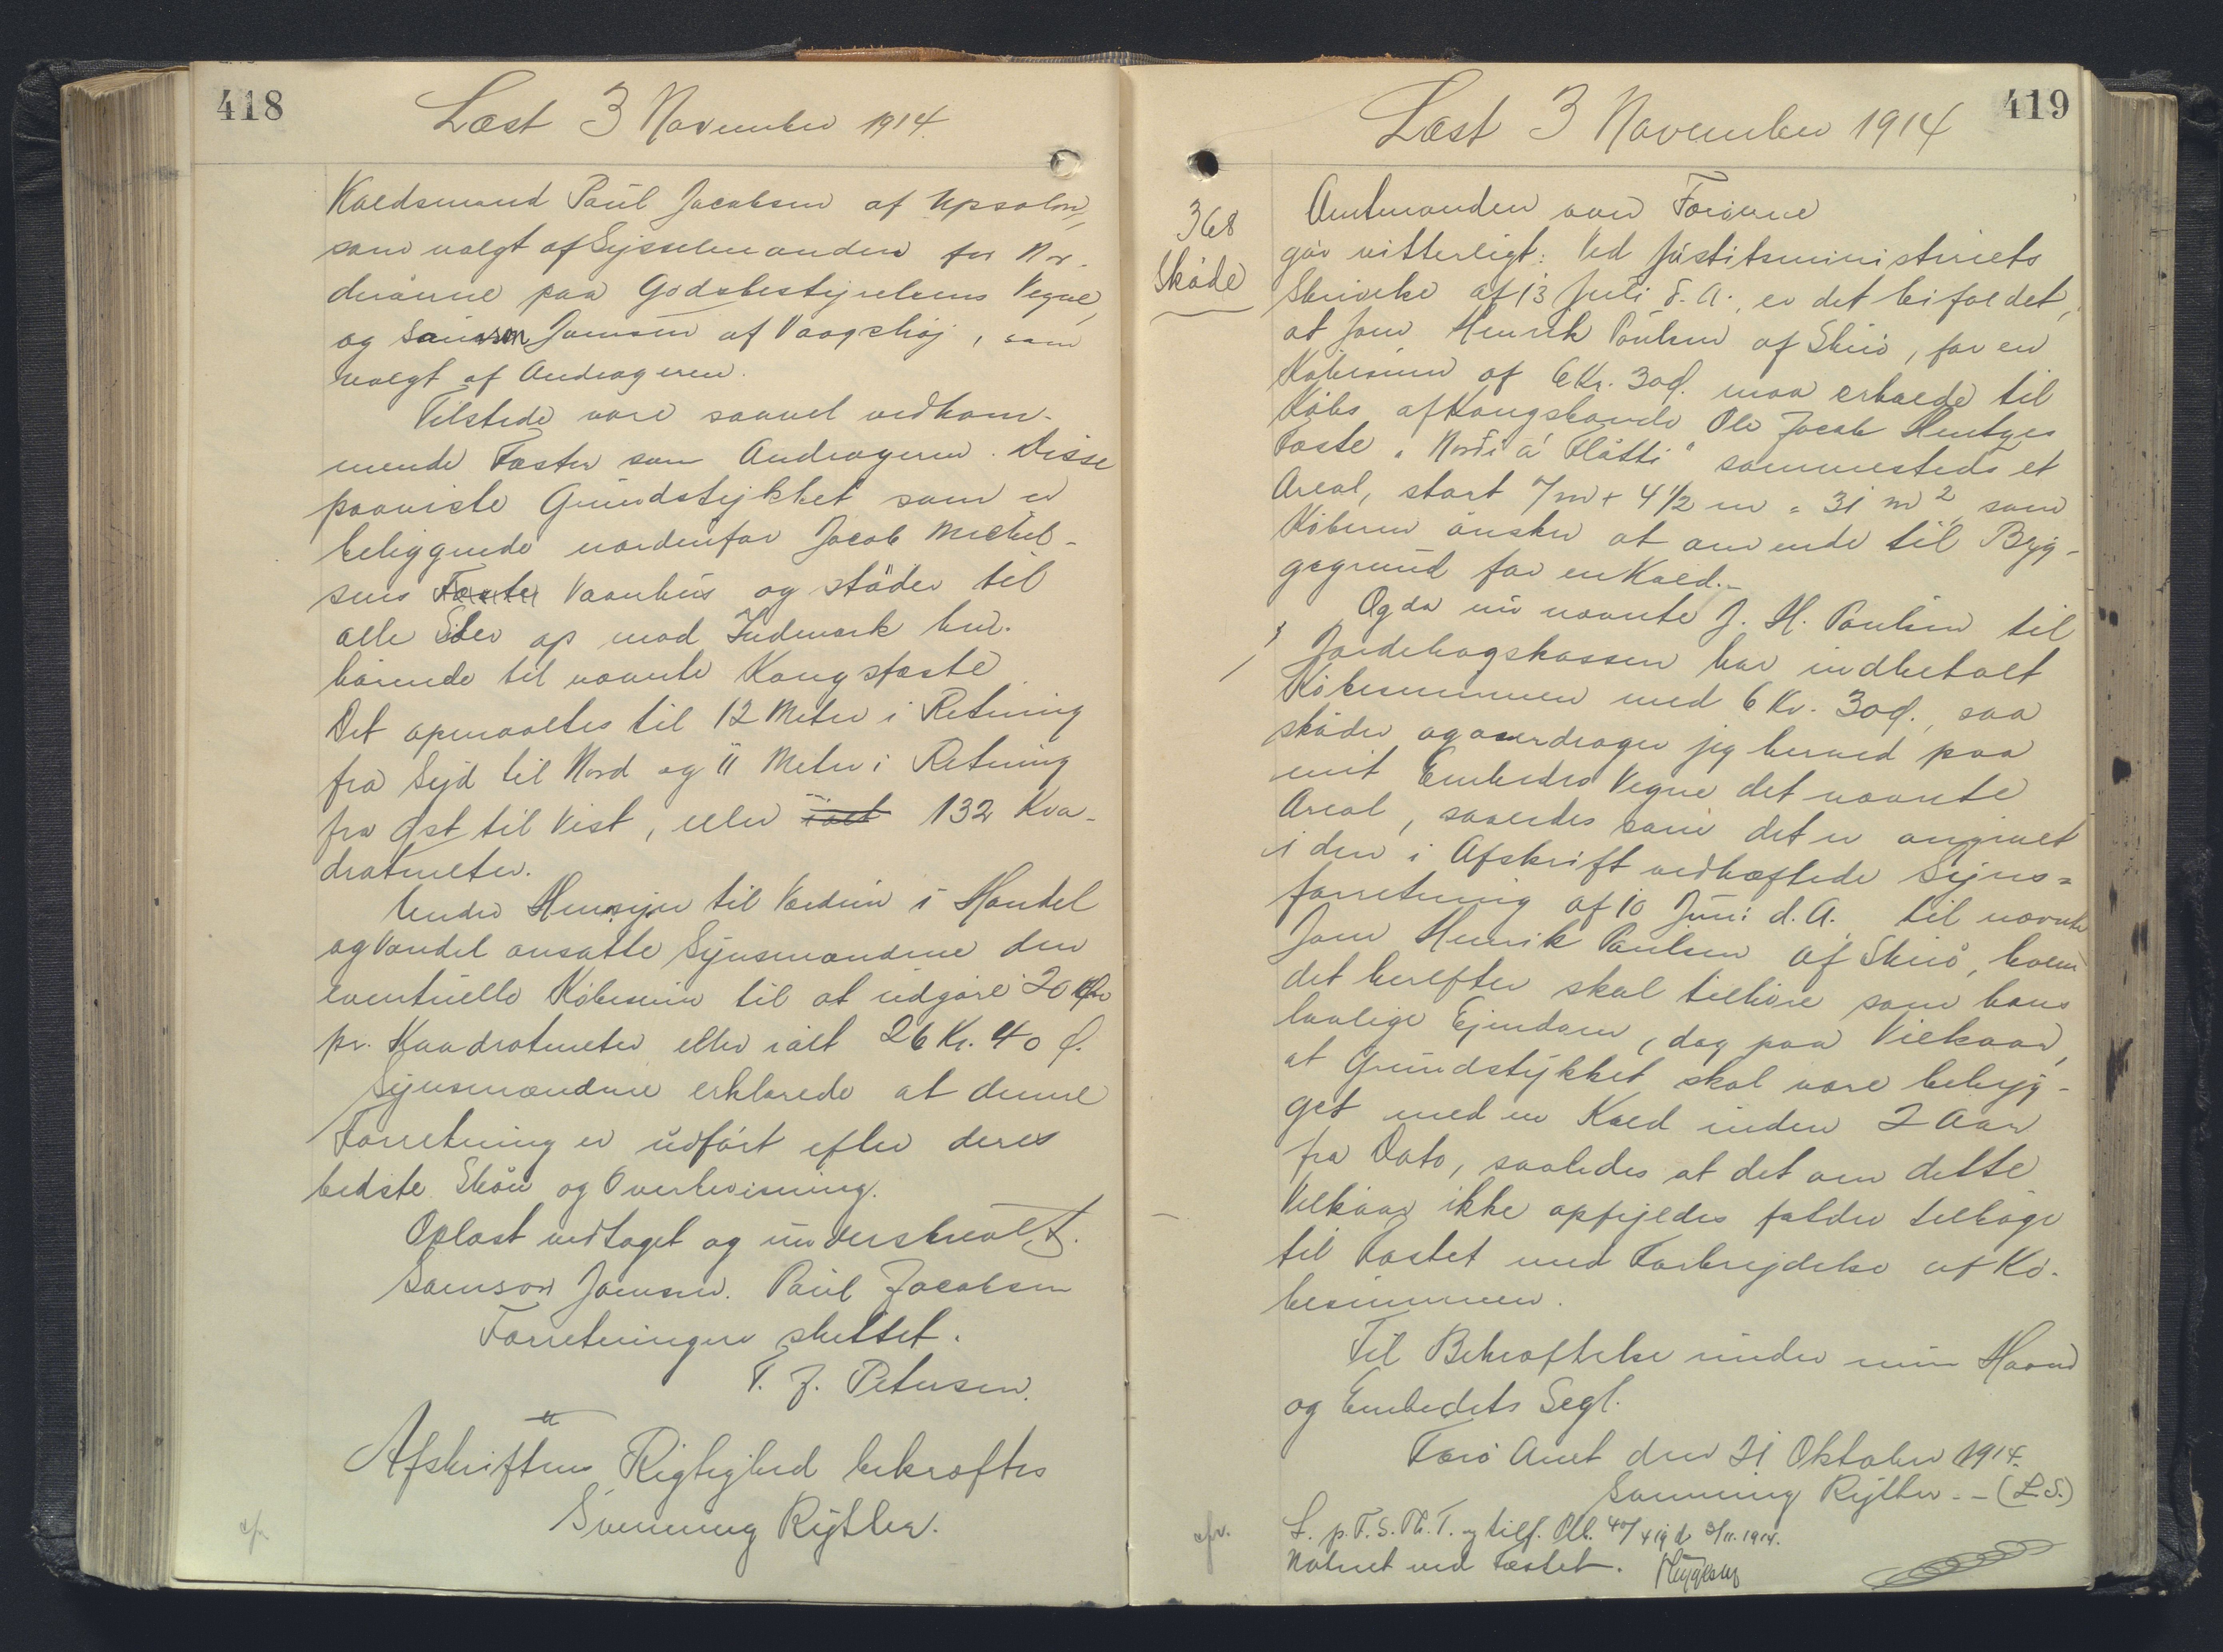 418
Læst 3 November 1914.
Kaldsmand Paul Jacobsen af Upsalon,
som valgt af Sysselmanden for Nor-
derøerne paa Godsbestyrelsens Vegne,
og Samson Joensen af Vaagshøj, som
valgt af Andrageren.
Tilstede vare saavel vedkom-
mende Fæster som Andrageren. Disse
paaviste Grundstykket som er
beliggende nordenfor Jacob Michel-
sens Faste Vaanhus og støder til
alle Sider op mod Indmark hen-
hørende til nævnte Kongsfæste.
Det opmaaltes til 12 Meter i Retning
fra Syd til Nord og 11 Meter i Retning
fra Øst til Vest, eller ialt 132 Kva-
dratmeter.
Under Hensyn til Værdien i Handel
og Vandel ansatte Synsmændene den
eventuelle Købesum til at udgøre 20 Øre
pr. Kvadratmeter eller ialt 26 Kr. 40 Ø.
Synsmændene erklærede at denne
Forretning er udført efter deres
bedste Skøn og Overbevisning.
Oplæst vedtaget og underskrevet.
Samson Joensen. Paul Jacobsen
Forretningen sluttet.
T. J. Petersen.
Afskriftens Rigtighed bekræftes
Svenning Rytter.
419
Læst 3 November 1914
368
Skøde
Amtmanden over Færøerne
gør vitterligt: Ved Justitsministeriets
Skrivelse af 13 Juli d. A., er det bifaldet,
at Joen Henrik Poulsen af Skuø, for en
Købesum af 6 Kr. 30 Ø. maa erholde til
Købs af Kongsbonde Ole Jacob Hentzes
Fæste "Nordi á Fløtti" sammesteds et
Areal, stort 7 m + 4 1/2 m = 31 m2 som
Køberen ønsker at anvende til Byg-
gegrund for en Kæld.-
Og da nu nævnte J. H. Poulsen til
Jordebogskassen har indbetalt
Købesummen med 6 Kr. 30 Ø., saa
skøder og overdrager jeg herved paa
mit Embedes Vegne det nævnte
Areal, saaledes som det er angivet
i den i Afskrift vedhæftede Syns=
forretning af 10 Juni d. A. til nævnte
Joen Henrik Poulsen af Skuø, hvem
det herefter skal tilhøre som hans
lovlige Ejendom, dog paa Vilkaar,
at Grundstykket skal være bebyg-
get med en Kæld inden 2 Aar
fra Dato, saaledes at det om dette
Vilkaar ikke opfyldes falder tilbage
til Fæstet mod Forbrydelse af Kø-
besummen.
Til Bekræftelse under min Haand
og Embedets Segl.
Færø Amt den 21 Oktober 1914.
Svenning Rytter. - (L.S.)
L. p. F. S. Th. T. og tilf. Bl. 40/419 d 3/11. 1914.
Noteret ved Fæstet.